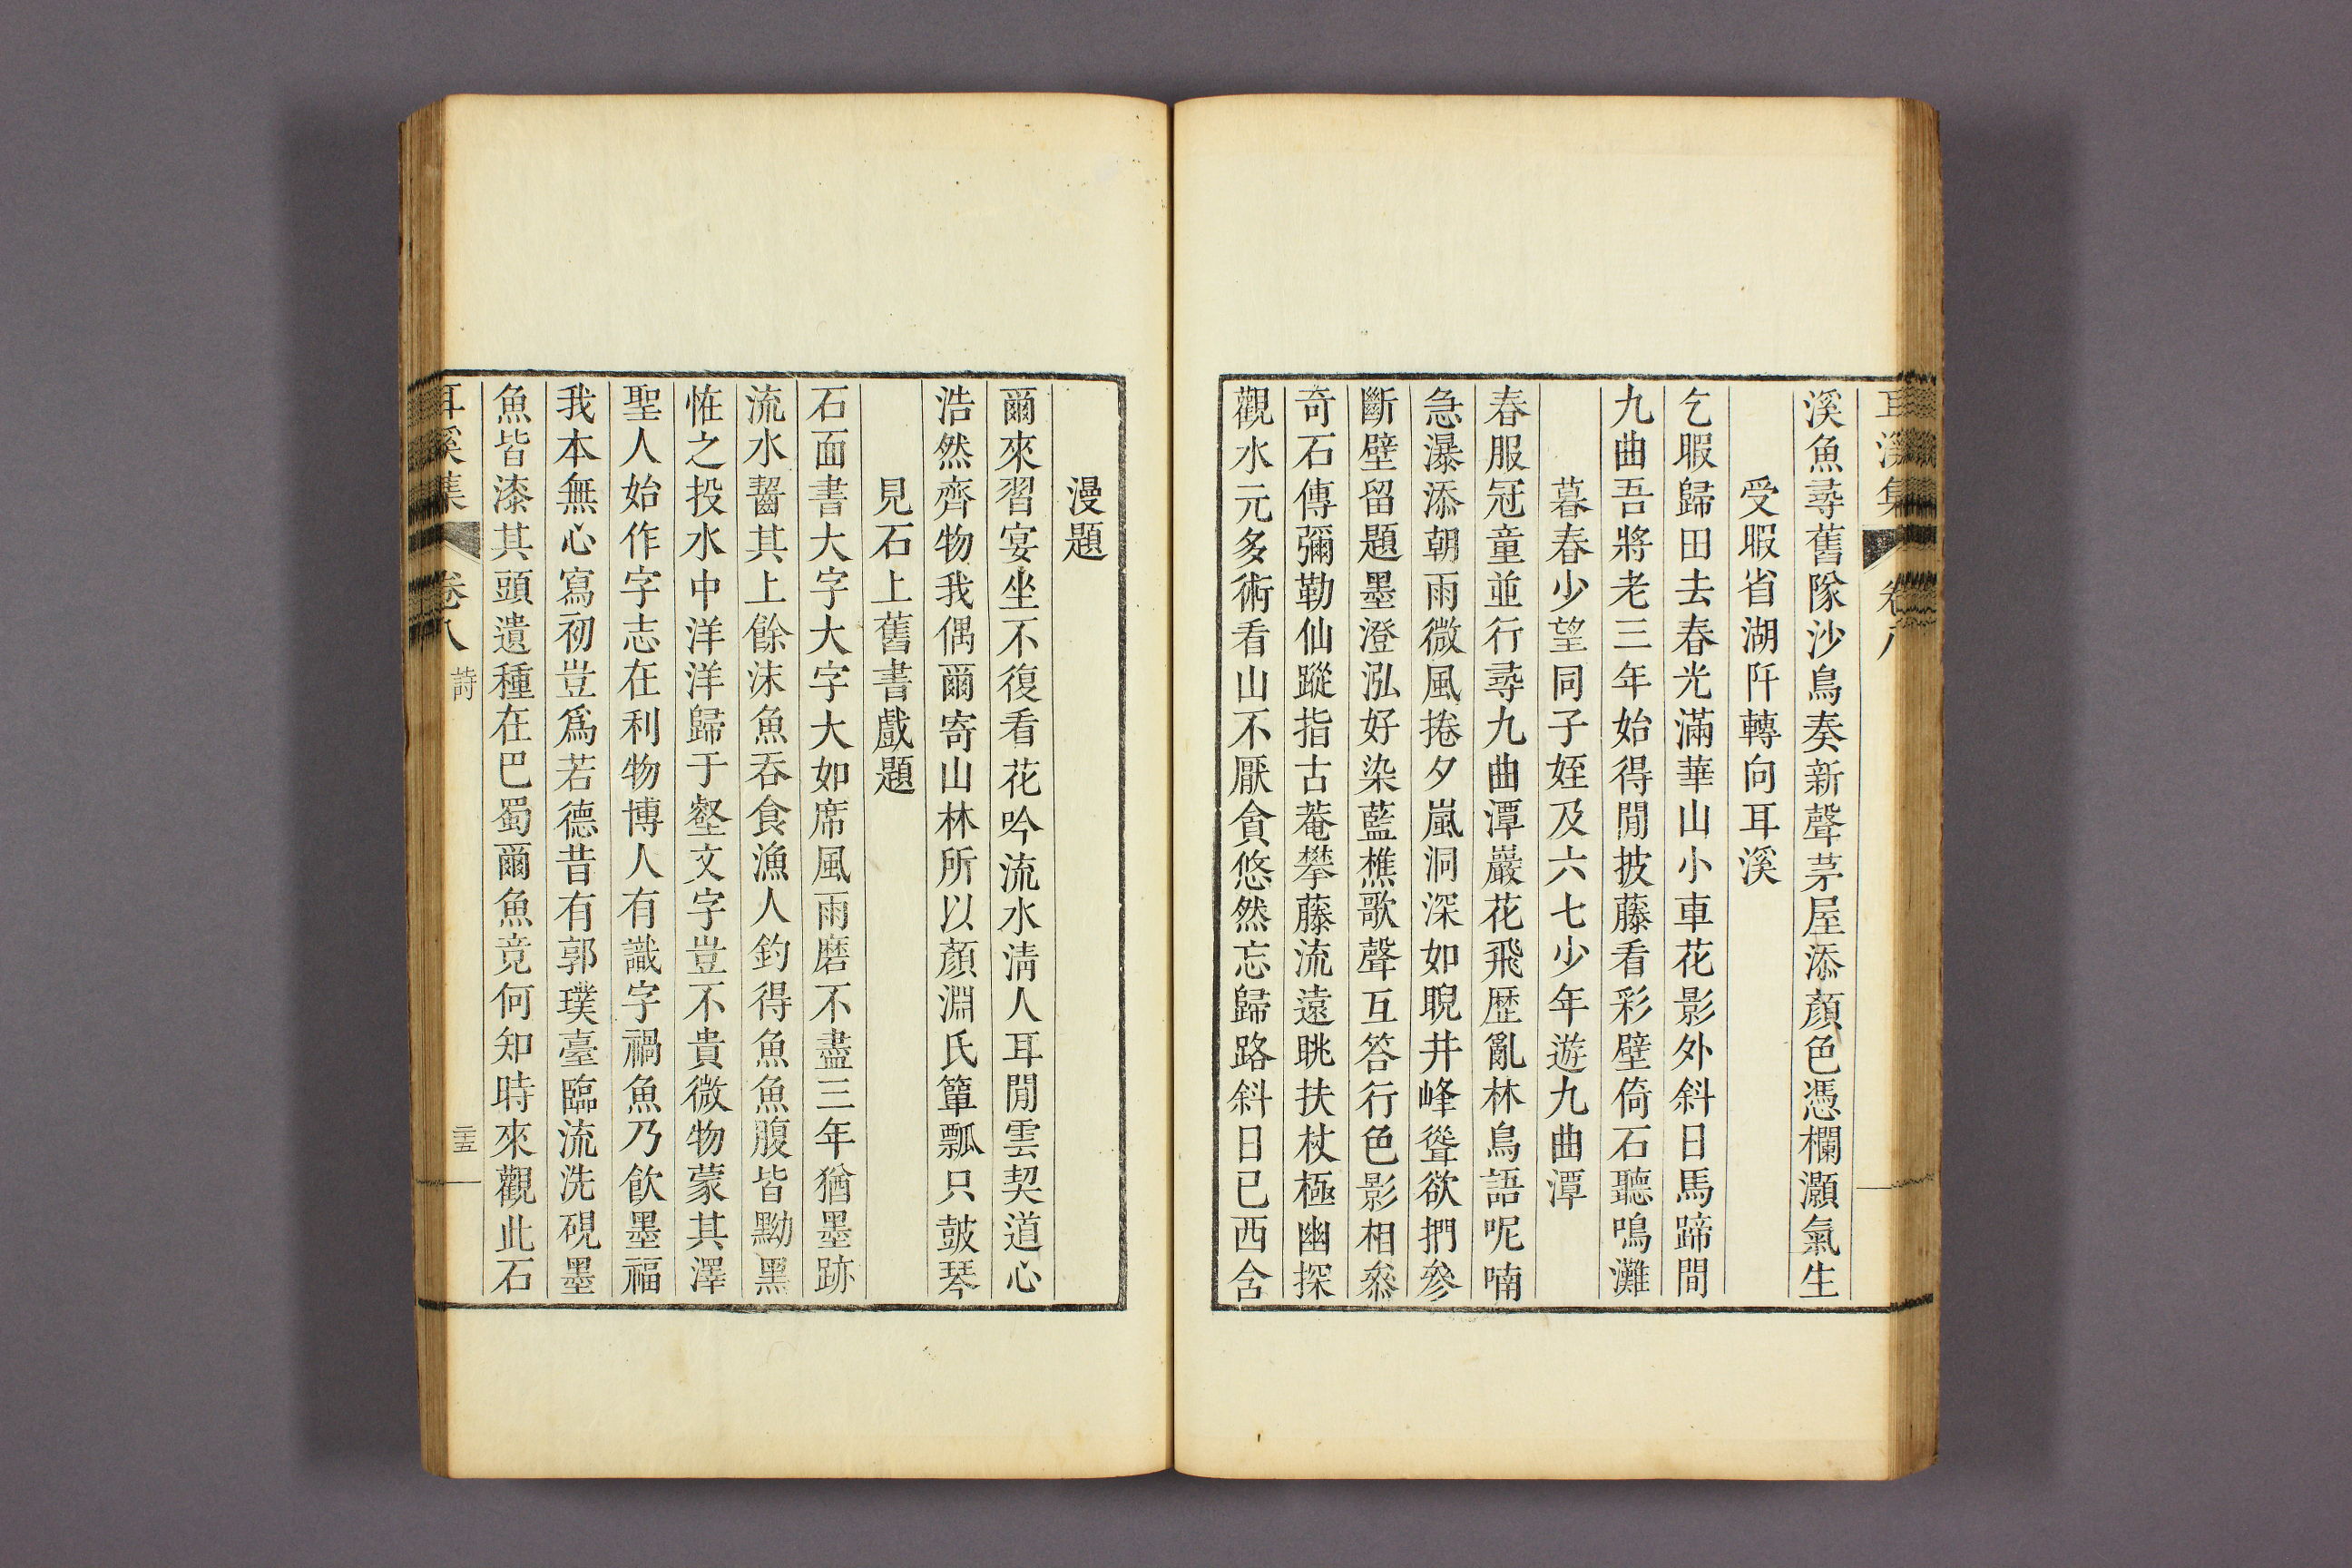 耳溪集 卷八
溪魚尋舊隊沙鳥奏新聲茅屋添顏色憑欄灝氣生
受暇省湖阡轉向耳溪
乞暇歸田去春光滿華山小車花影外斜日馬蹄間
九曲吾將老三年始得閒披藤看彩壁倚石聽鳴灘
暮春少望同子姪及六七少年遊九曲潭
春服冠童並行尋九曲潭巖花飛歷亂林鳥語呢喃
急瀑添朝雨微風捲夕嵐洞深如睨井峰聳欲捫參
斷壁留題墨澄泓好染藍樵歌聲互答行色影相叅
奇石傳彌勒仙蹤指古菴攀藤流遠眺扶杖極幽探
觀水元多術看山不厭貪悠然忘歸路斜日已西含
漫題
爾來習宴坐不復看花吟流水淸人耳閒雲契道心
浩然齊物我偶爾寄山林所以顏淵氏簞瓢只鼓琴
見石上舊書戲題
石面書大字大字大如席風雨磨不盡三年猶墨跡
流水齧其上餘沫魚吞食漁人釣得魚魚腹皆黝黑
恠之投水中洋洋歸于壑文字豈不貴微物蒙其澤
聖人始作字志在利物博人有識字禍魚乃飮墨福
我本無心寫初豈爲若德昔有郭璞臺臨流洗硯墨
魚皆漆其頭遺種在巴蜀爾魚竟何知時來觀此石
耳溪集 卷八 詩 二十五